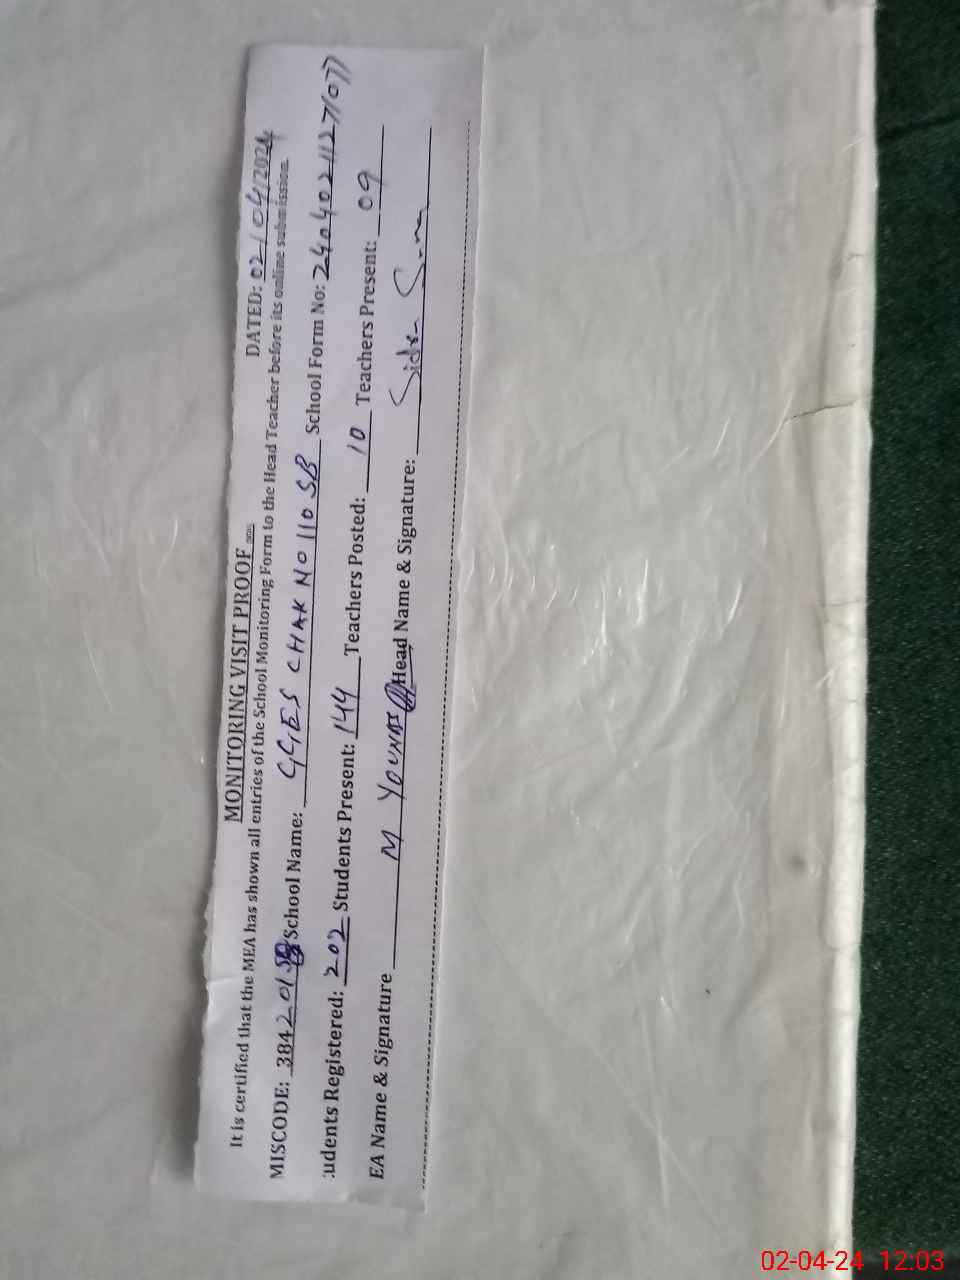 MONITORING VISIT PROOF DATED: 02/04/2024
It is certified that the MEA has shown all entries of the School Monitoring Form to the Head Teacher before its online submission.
MISCODE: 384201 School Name: GGES CHAK NO 110 SB School Form No: 24040211271077
udents Registered: 202 Students Present: 144 Teachers Posted: 10 Teachers Present: 09
EA Name & Signature M YOUNAS Head Name & Signature: Sidra
02-04-24 12:03